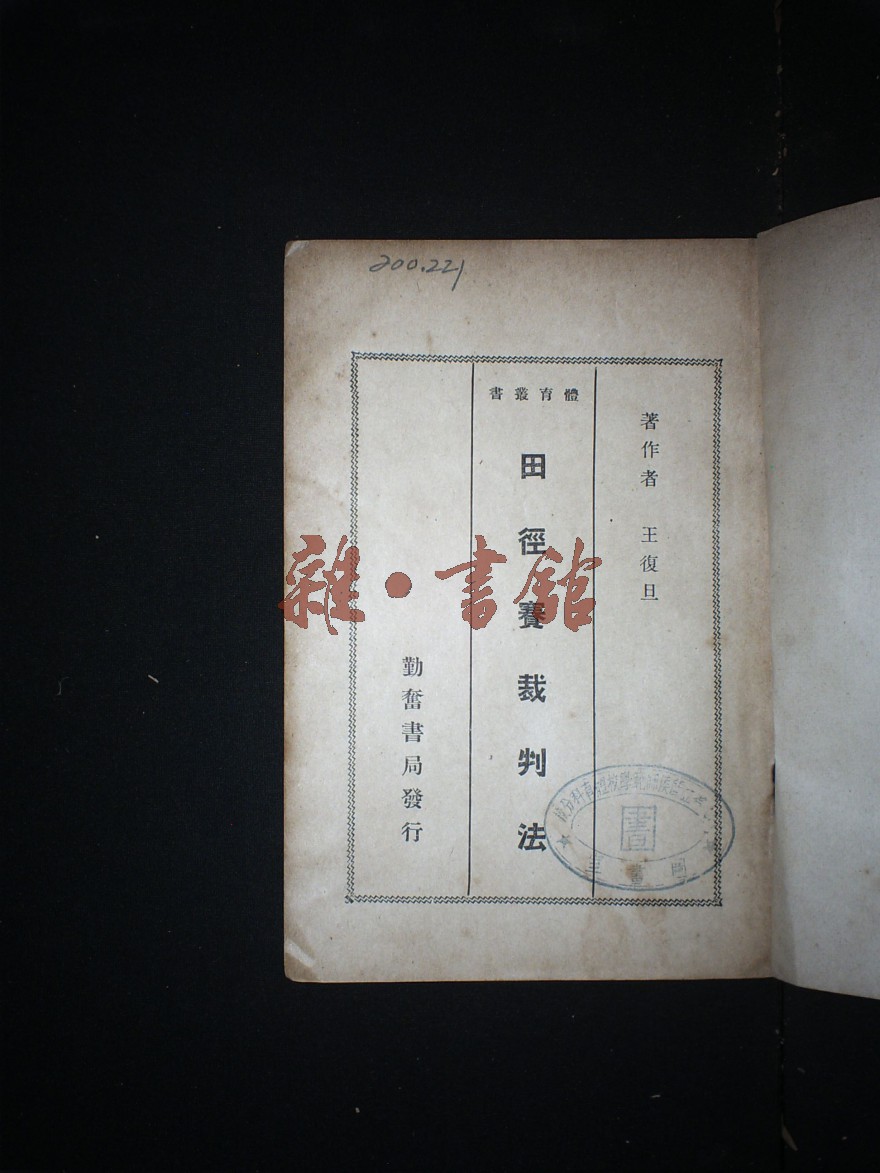 200.221
著作者 王復旦
體育叢書
田徑賽裁判法
勤奮書局發行
雜·書館
圖書室